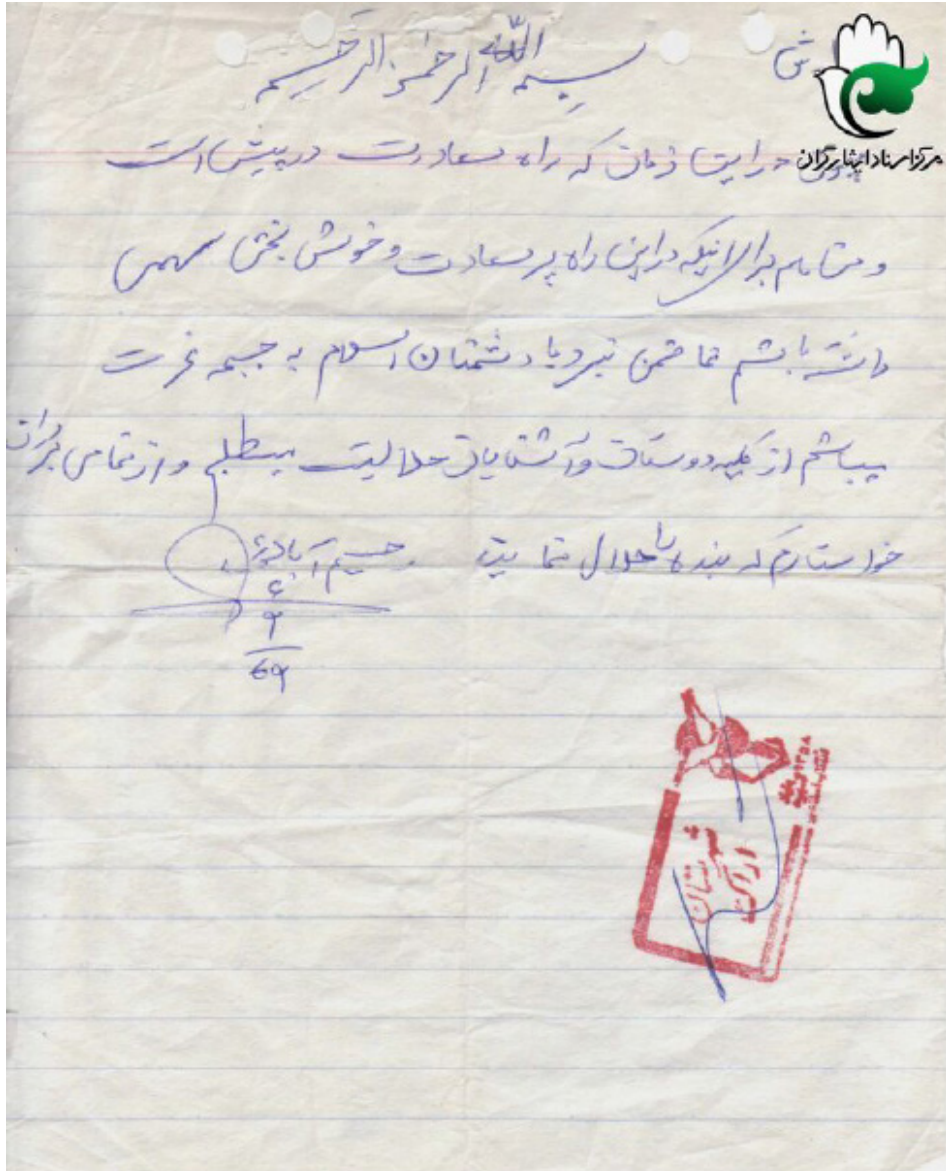 بسم الله الرحمن الرحیم
ش
مرکز اسناد ایثارگران
در این زمان که راه سعادت در پیش است
و من هم برای اینکه در این راه پر سعادت و خوش بختی سهمی
داشته باشم عازم نبرد با دشمنان اسلام به جبهه غرب
میباشم از کلیه دوستان و آشنایان حلالیت میطلبم و از تمامی برادران
خواستارم که بنده را حلال نمایید
شهرستان
اراک